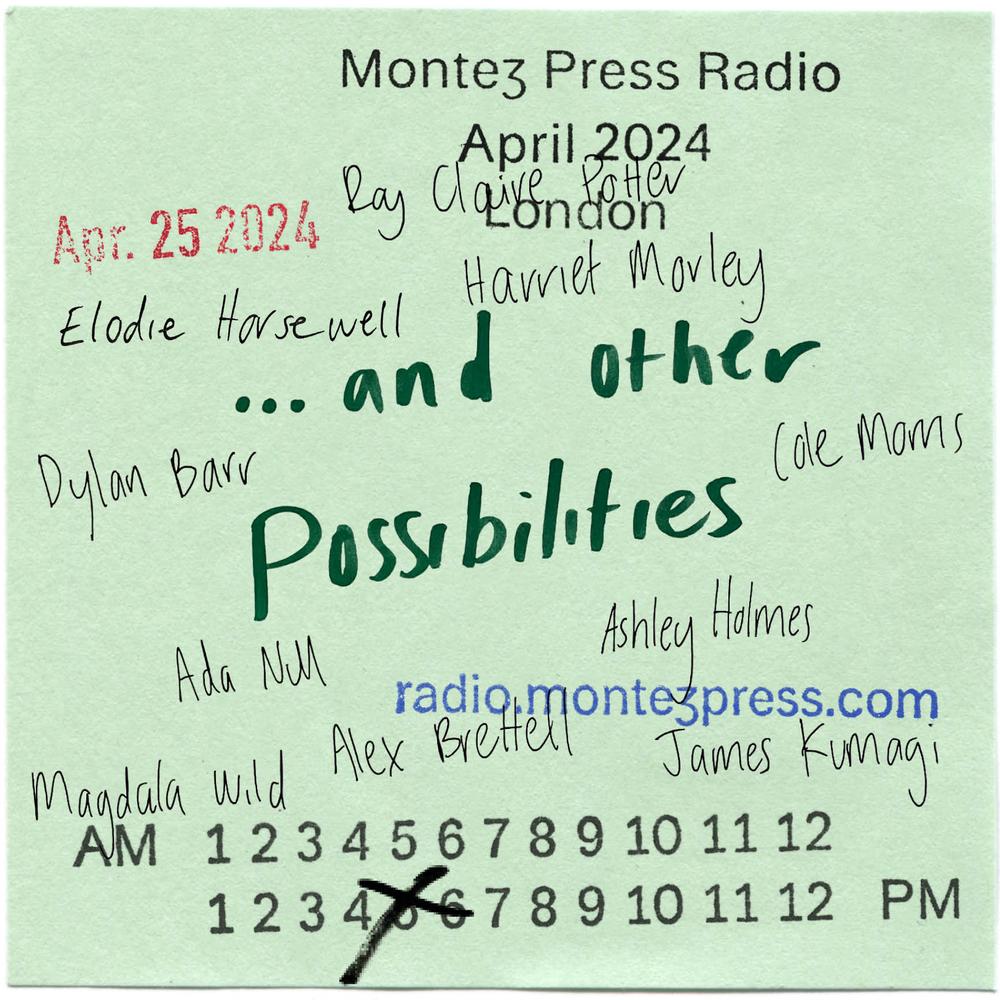 Monteʒ Press Radio
April 2024
Ray Claire Potter
London
Apr. 25 2024
Harriet Morley
Elodie Horsewell
...and other
Cole Morris
Dylan Barr
Possibilities
Ashley Holmes
Ada Null
radio.monteʒpress.com
Alex Brettell
James Kumagi
Magdala Wild
AM 1 2 3 4 5 6 7 8 9 10 11 12
1 2 3 4 5 6 7 8 9 10 11 12 PM